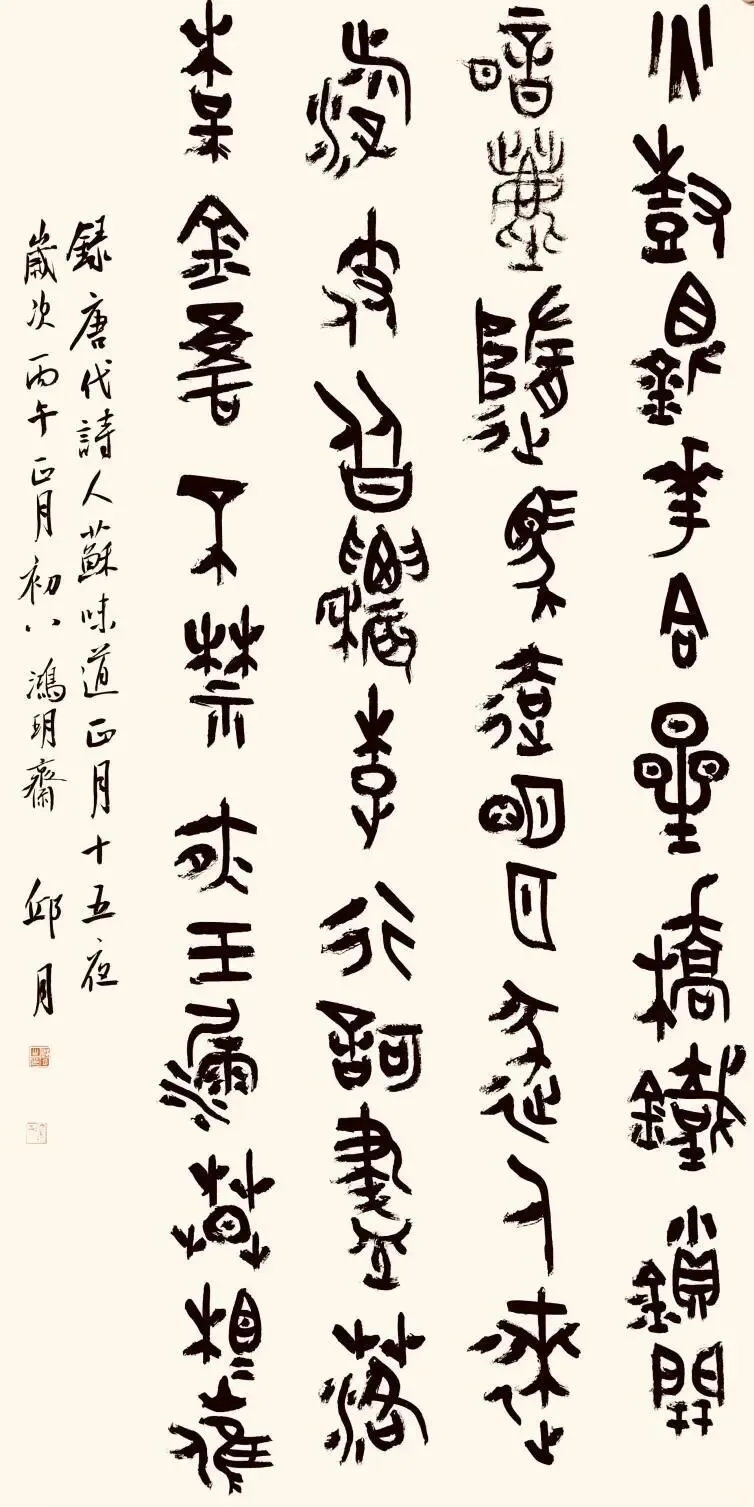 火樹銀華合星橋鐵鎖開
暗塵隨馬去明月逐人來
游伎皆穠李行歌盡落
梅金吾不禁夜玉漏莫相催
錄唐代詩人蘇味道正月十五夜
歲次丙午正月初八鴻玥齋 邱月